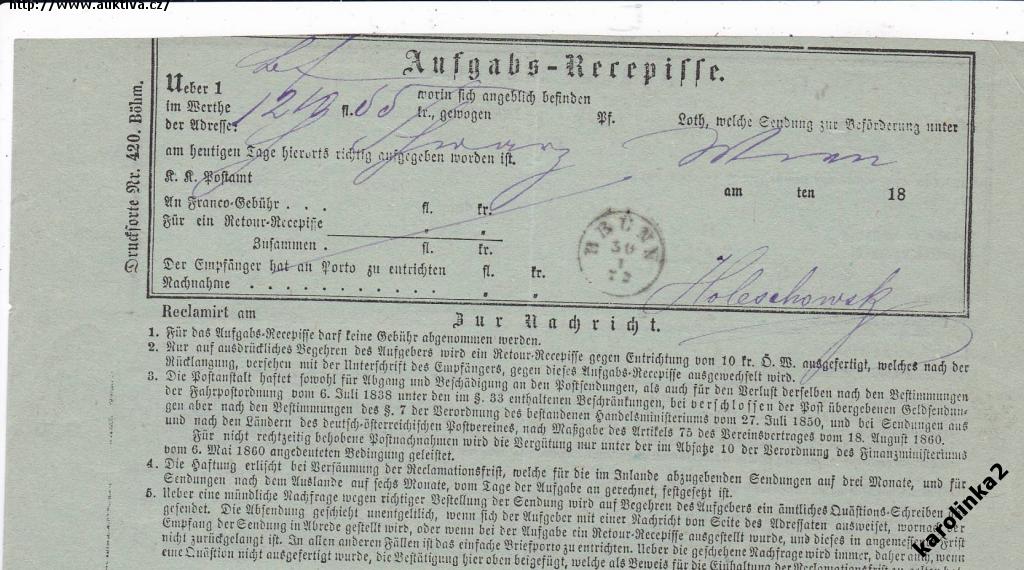 http://www.auktiva.cz/
Aufgabs-Recepisse.
Ueber 1 worin sich angeblich befinden
im Werthe fl. 55 kr., gewogen Pf. Loth, welche Sendung zur Beförderung unter
der Adresse: Schwarz Wien
am heutigen Tage hierorts richtig aufgegeben worden ist.
K. K. Postamt am ten 18
An Franco-Gebühr . . . fl. kr.
Für ein Retour-Recepisse " "
Zusammen . fl. kr.
Der Empfänger hat an Porto zu entrichten fl. kr.
Nachnahme . . . . . . . . . . . " "
BRÜNN
30
1
72
Holeschowsky
Drucksorte Nr. 420. Böhm.
Reclamirt am
Zur Nachricht.
1. Für das Aufgabs-Recepisse darf keine Gebühr abgenommen werden.
2. Nur auf ausdrückliches Begehren des Aufgebers wird ein Retour-Recepisse gegen Entrichtung von 10 kr. Ö. W. ausgefertigt, welches nach der
Rücklangung, versehen mit der Unterschrift des Empfängers, gegen dieses Aufgabs-Recepisse ausgewechselt wird.
3. Die Postanstalt haftet sowohl für Abgang und Beschädigung an den Postsendungen, als auch für den Verlust derselben nach den Bestimmungen
der Fahrpostordnung vom 6. Juli 1838 unter den im §. 33 enthaltenen Beschränkungen, bei verschlossen der Post übergebenen Geldsendun-
gen aber nach den Bestimmungen des §. 7 der Verordnung des bestandenen Handelsministeriums vom 27. Juli 1850, und bei Sendungen aus
und nach den Ländern des deutsch-österreichischen Postvereines, nach Maßgabe des Artikels 75 des Vereinsvertrages vom 18. August 1860.
Für nicht rechtzeitig behobene Postnachnahmen wird die Vergütung nur unter der im Absatze 10 der Verordnung des Finanzministeriums
vom 6. Mai 1860 angedeuteten Bedingung geleistet.
4. Die Haftung erlischt bei Versäumung der Reclamationsfrist, welche für die im Inlande abzugebenden Sendungen auf drei Monate, und für
Sendungen nach dem Auslande auf sechs Monate, vom Tage der Aufgabe an gerechnet, festgesetzt ist.
5. Ueber eine mündliche Nachfrage wegen richtiger Bestellung der Sendung wird auf Begehren des Aufgebers ein ämtliches Quästions-Schreiben
gesendet. Die Absendung geschieht unentgeltlich, wenn sich der Aufgeber mit einer Nachricht von Seite des Adressaten ausweiset, wornach der
Empfang der Sendung in Abrede gestellt wird, oder wenn bei der Aufgabe ein Retour-Recepisse ausgestellt wurde, und dieses in angemessener Frist
nicht zurückgelangt ist. In allen anderen Fällen ist das einfache Briefporto zu entrichten. Ueber die geschehene Nachfrage wird immer, daher auch, wenn
eine Quästion nicht ausgefertigt wurde, die Bestätigung hier oben beigefügt, welche als Beweis für die Einhaltung der Reclamationsfrist
karolinka2